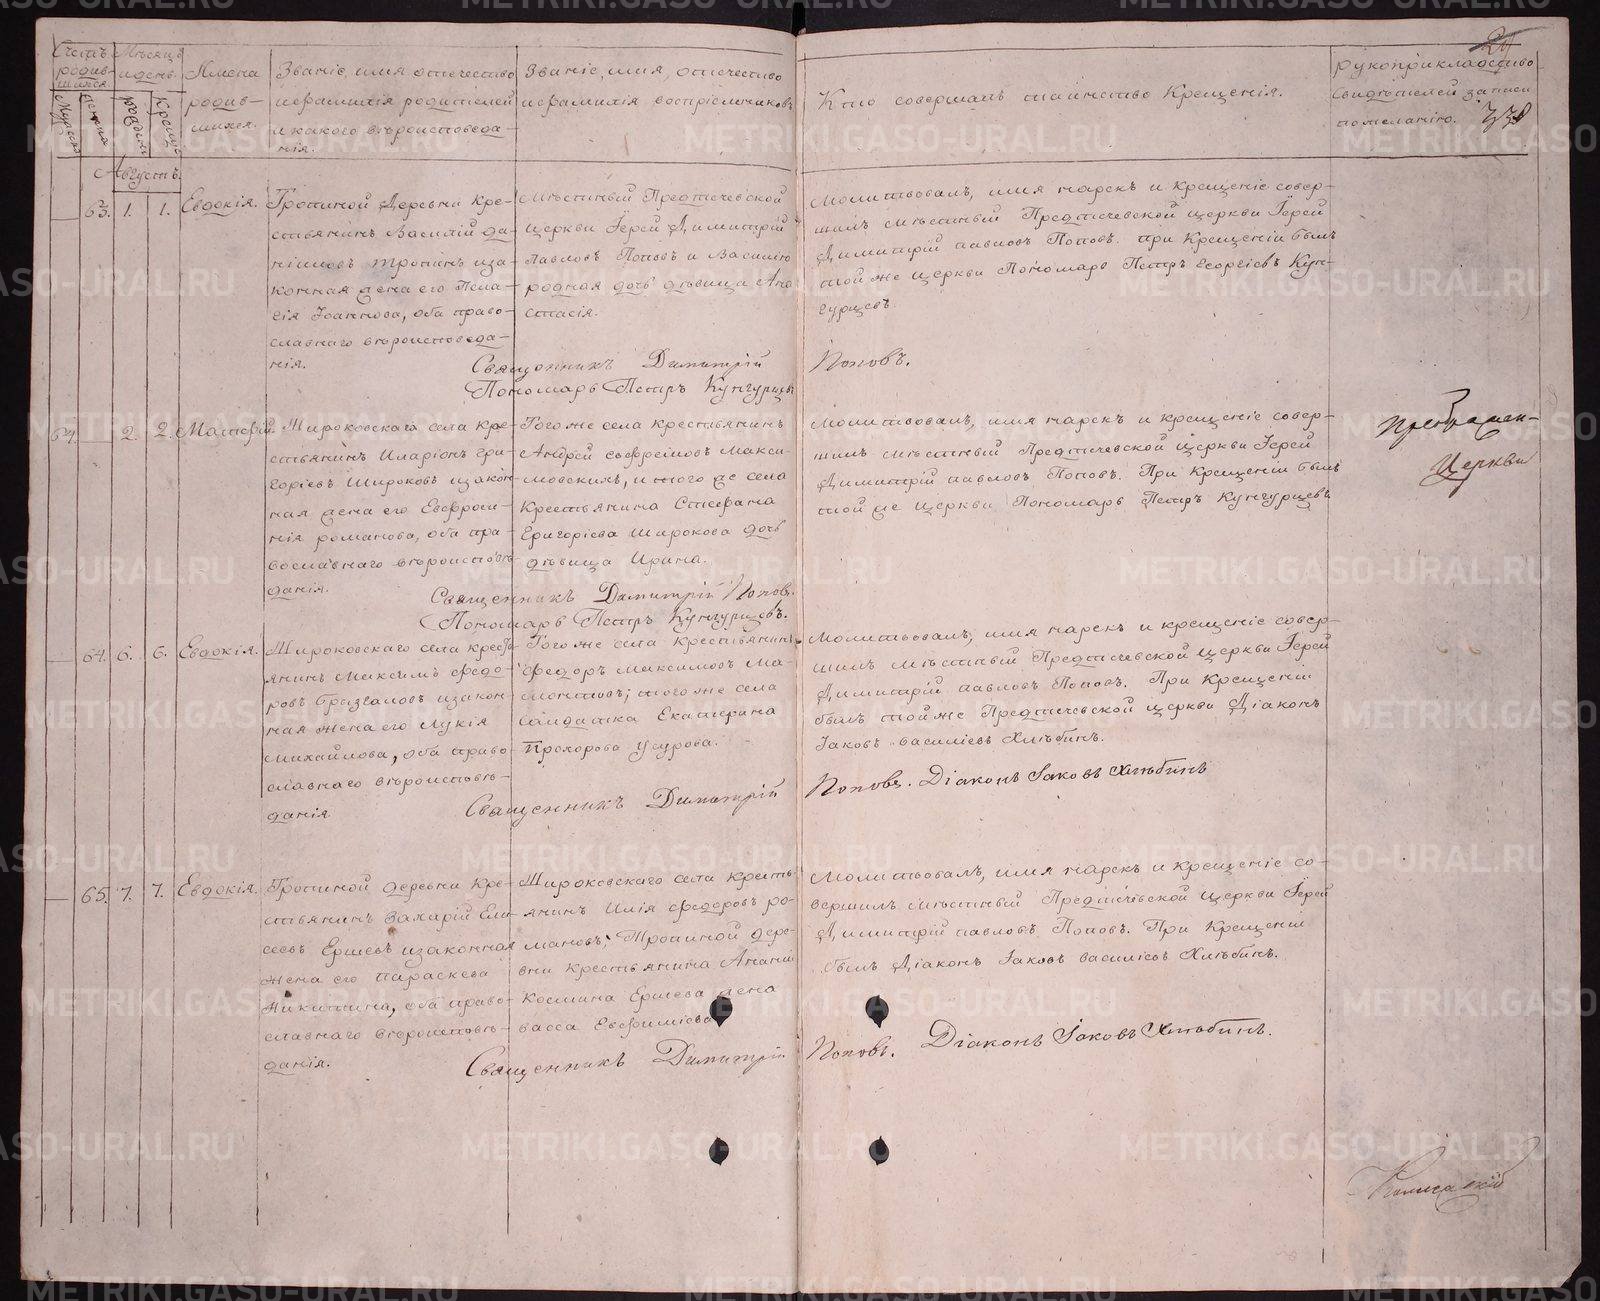 Счетъ родив-шихся.
Мужеска
Женска
Мѣсяцъ и день.
рожден.
Крещен.
Имена родив-шихся.
Званіе, имя отчество
и фамилія родителей
и какого вѣроисповеда-
нія.
Званіе, имя, отчество
и фамилія воспріемниковъ
Кто совершалъ таинство Крещенія.
рукоприкладство
свидѣтелей записи
по желанію.
Августъ.
63. 1. 1. Евдокія.
Тропиной Деревни Кре-
стьянинъ Василій да-
ніиловъ тропинъ иза-
конная жена его Пела-
гія Іоаннова, оба право-
славнаго вѣроисповеда-
нія.
Мѣстный Предтечевской
церкви Іерей Димитрій
Павловъ Поповъ и Василія
родная дочь дѣвица Ана-
стасія.
Молитвовалъ, имя нарекъ и крещеніе совер-
шилъ мѣстный Предтечевской церкви Іерей
Димитрій павловъ Поповъ. при Крещеніи былъ
той же церкви Пономарь Петръ Георгіевъ Кун-
гурцевъ.
Священникъ Димитрій Поповъ.
Пономарь Петръ Кунгурцевъ
64. 2. 2. Матвѣй.
Широковскаго села кре-
стьянинъ Иларіонъ гри-
горіевъ Широковъ изакон-
ная жена его Евфроси-
нія романова, оба пра-
вославнаго вѣроисповѣ-
данія.
Того же села крестьянинъ
Андрей евфреимовъ Макси-
мовскихъ, и того же села
Крестьянина Стефана
Григоріева Широкова дочь
дѣвица Ирина.
Молитвовалъ, имя нарекъ и крещеніе совер-
шилъ мѣстный Предтечевской церкви Іерей
Димитрій павловъ Поповъ. При крещеніи былъ
той же церкви Пономарь Петръ Кунгурцевъ
Священникъ Димитрій Поповъ.
Пономарь Петръ Кунгурцовъ.
Церкви
64. 6. 6. Евдокія.
Широковскаго села кресть-
янинъ Максимъ федо-
ровъ Бразгаловъ изакон-
ная жена его Лукія
михайлова, оба право-
славнаго вѣроисповѣ-
данія
Того же села крестьянинъ
федоръ Максимовъ Ма-
монтовъ; того же села
солдатка Екатерина
Прохорова Усурова.
Молитвовалъ, имя нарекъ и крещеніе совер-
шилъ мѣстный Предтечевской церкви Іерей
Димитрій павловъ Поповъ. При крещеніи
былъ той же Предтечевской церкви Діаконъ
Іаковъ василіевъ Хлѣбинъ.
Священникъ Димитрій Поповъ. Діаконъ Іаковъ Хлѣбинъ
65. 7. 7. Евдокія.
Тропиной деревни Кре-
стьянинъ Захарій Ели-
сеевъ Ершевъ изаконная
жена его параскева
Никитина, оба право-
славнаго вѣроисповѣ-
данія.
Широковскаго села кресть-
янинъ Илія федоровъ ро-
мановъ; Тропиной дере-
вни крестьянина Ананіи
Космина Ершева жена
васса Евфиміева
Молитвовалъ, имя нарекъ и крещеніе со-
вершилъ мѣстный Предтечевской церкви Іерей
Димитрій павловъ Поповъ. При Крещеніи
былъ Діаконъ Іаковъ василіевъ Хлѣбинъ.
Священникъ Димитрій Поповъ. Діаконъ Іаковъ Хлѣбинъ.
METRIKI.GASO-URAL.RU